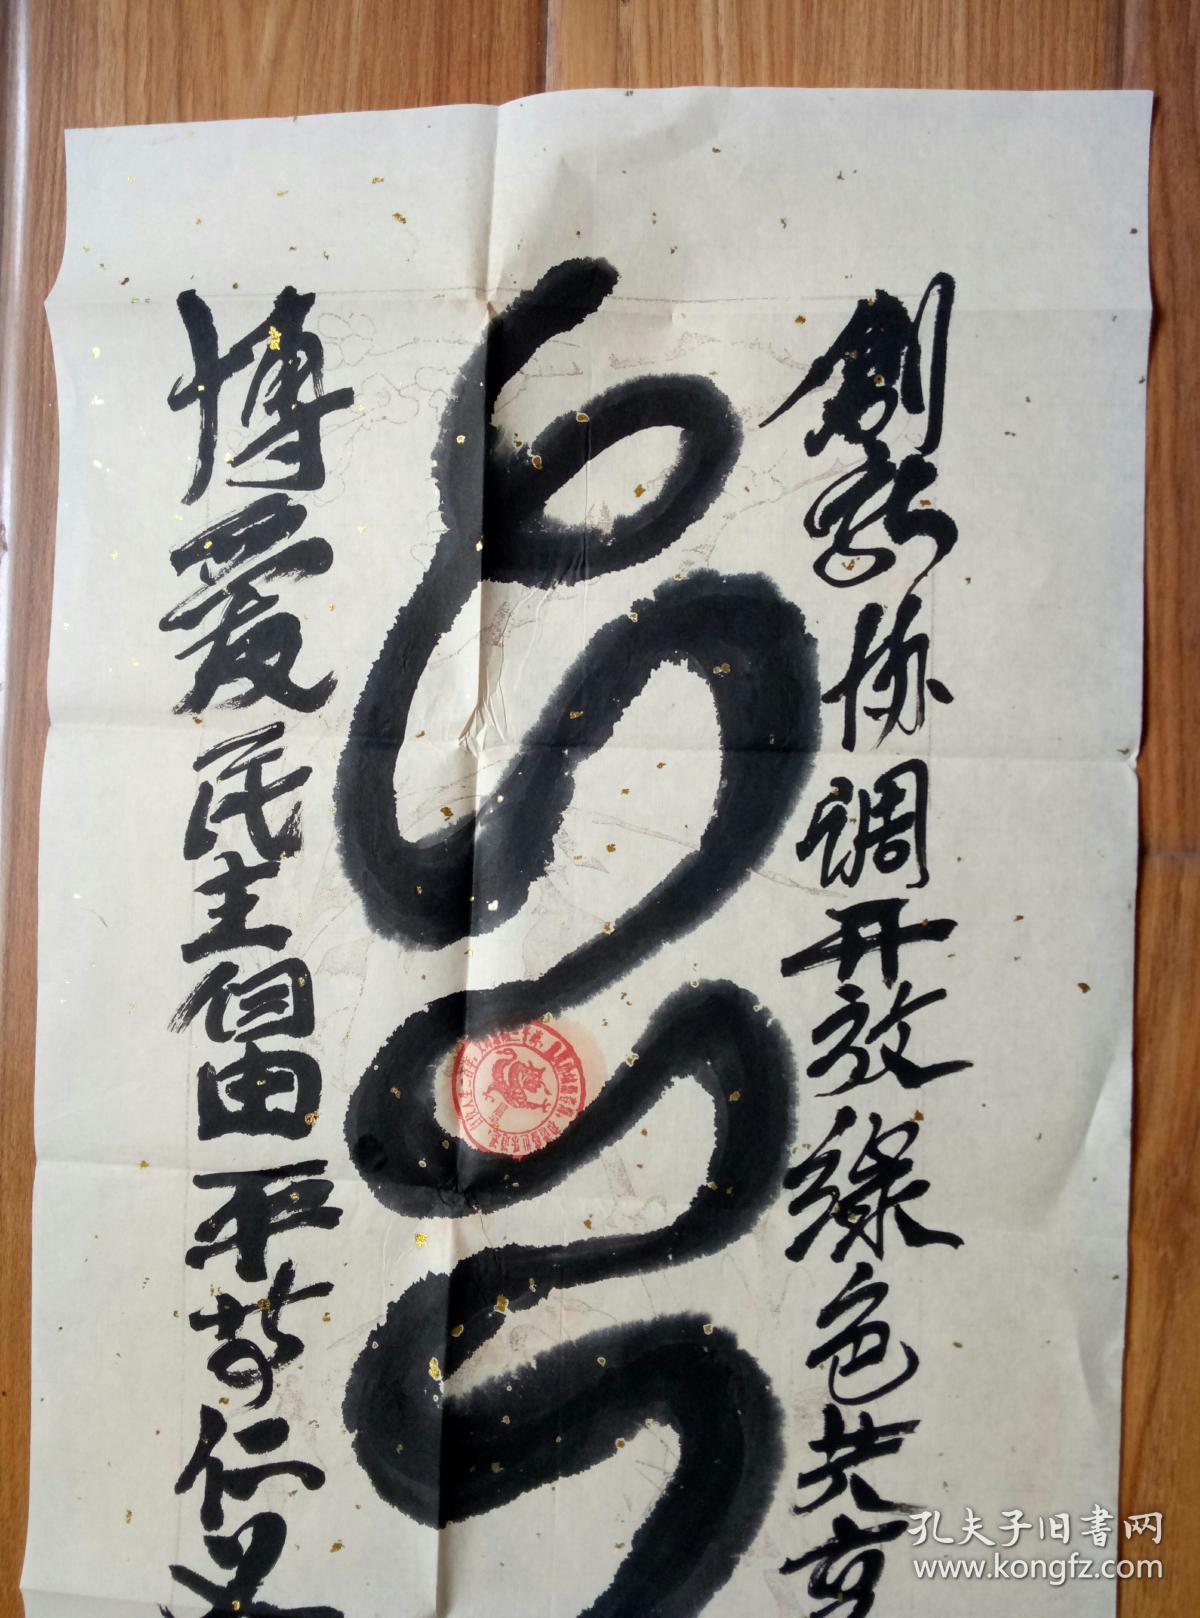 創新协调开放綠色共享
博爱民主自由平等仁义
孔夫子旧書网
www.kongfz.com